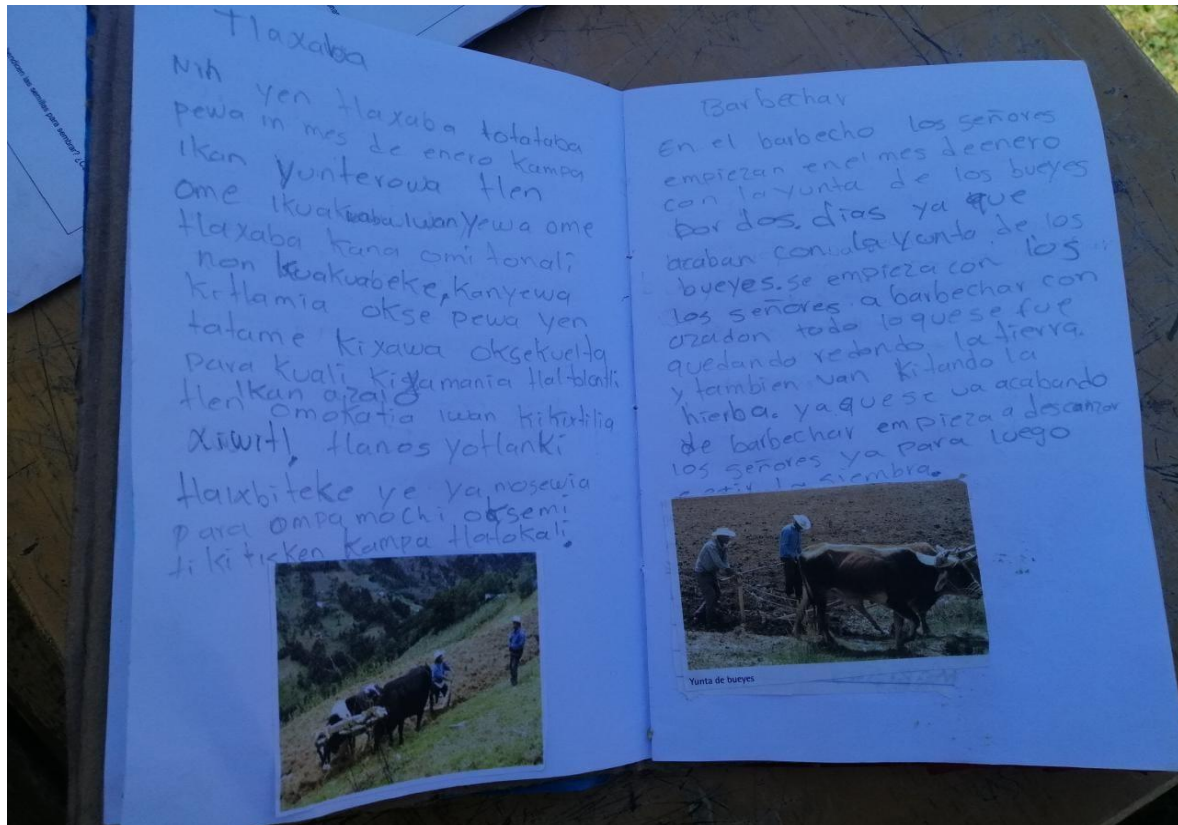 Tlaxaba
Nih yen tlaxaba totataba
pewa in mes de enero kampa
ikan yunterowa tlen
ome ikuakuaba iwan yewa ome
tlaxaba kana omi tonali
non kuakuabeke, kanyewa
kitlamia okse pewa yen
tatame kixawa oksekuelta
para kuali
tlen ikan
omokatia iwan kikixtilia
xiwitl, tlanos yotlanki
ye ya mosewia
para ompa mochi oksemi
kampa tlatokali.
Barbechar
En el barbecho los señores
empiezan en el mes de enero
con la yunta de los bueyes
por dos. dias ya que
acaban con la yunta de los
bueyes. se empieza con los
los señores a barbechar con
azadon todo lo que se fue
quedando redondo la tierra.
y tambien van kitando la
hierba. ya que se va acabando
de barbechar empieza a descanzar
los señores ya para luego
la siembra.
Yunta de bueyes